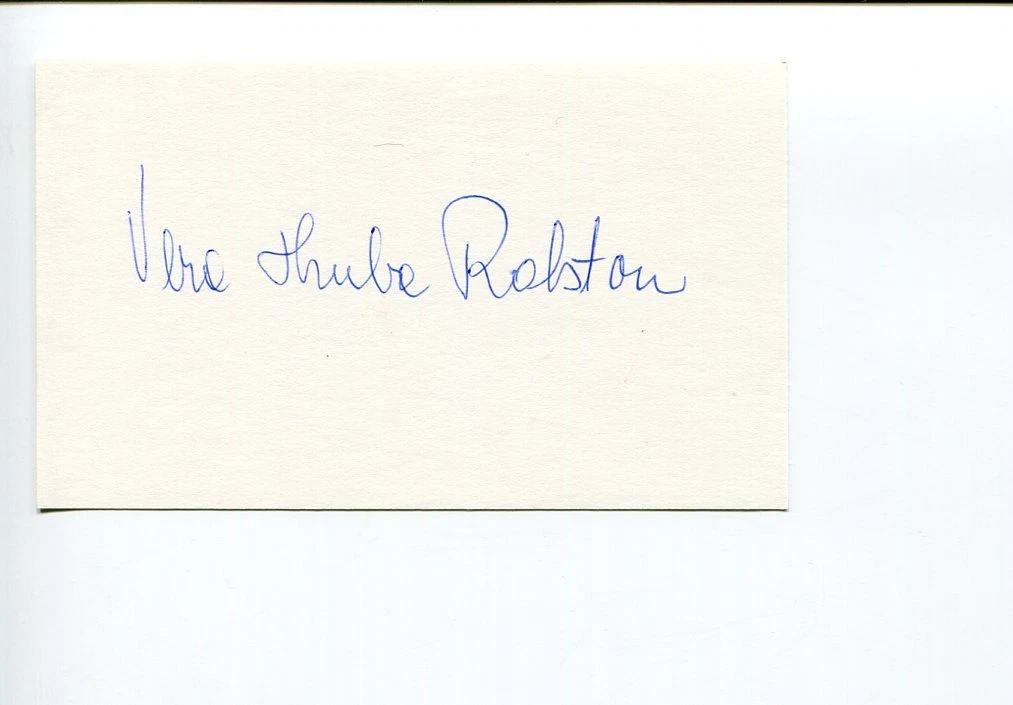 Vera Hruba Ralston